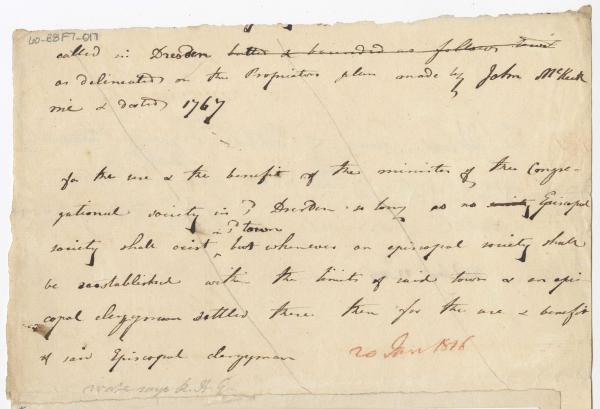 60-E8F7-017
called in Dresden butted & bounded as follows to wit
as delineated on the Proprietors plan made by John McKeck
nie & dated 1767
for the use & the benefit of the minister of the Congre-
gational society in sd Dresden so long as no society Episcopal
in sd town
society shall exist, but whenever an episcopal society shall
be reestablished within the limits of said town & an epis
copal clergyman settled there then for the use & benefit
of said Episcopal clergyman 20 Jan 1816
says R. H. G.